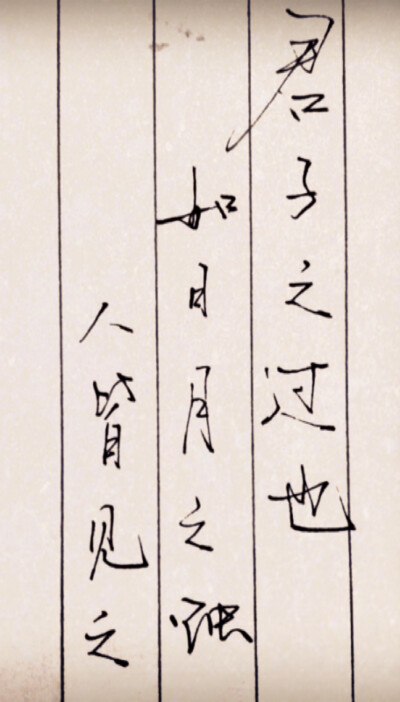 君子之过也
如日月之蚀
人皆见之